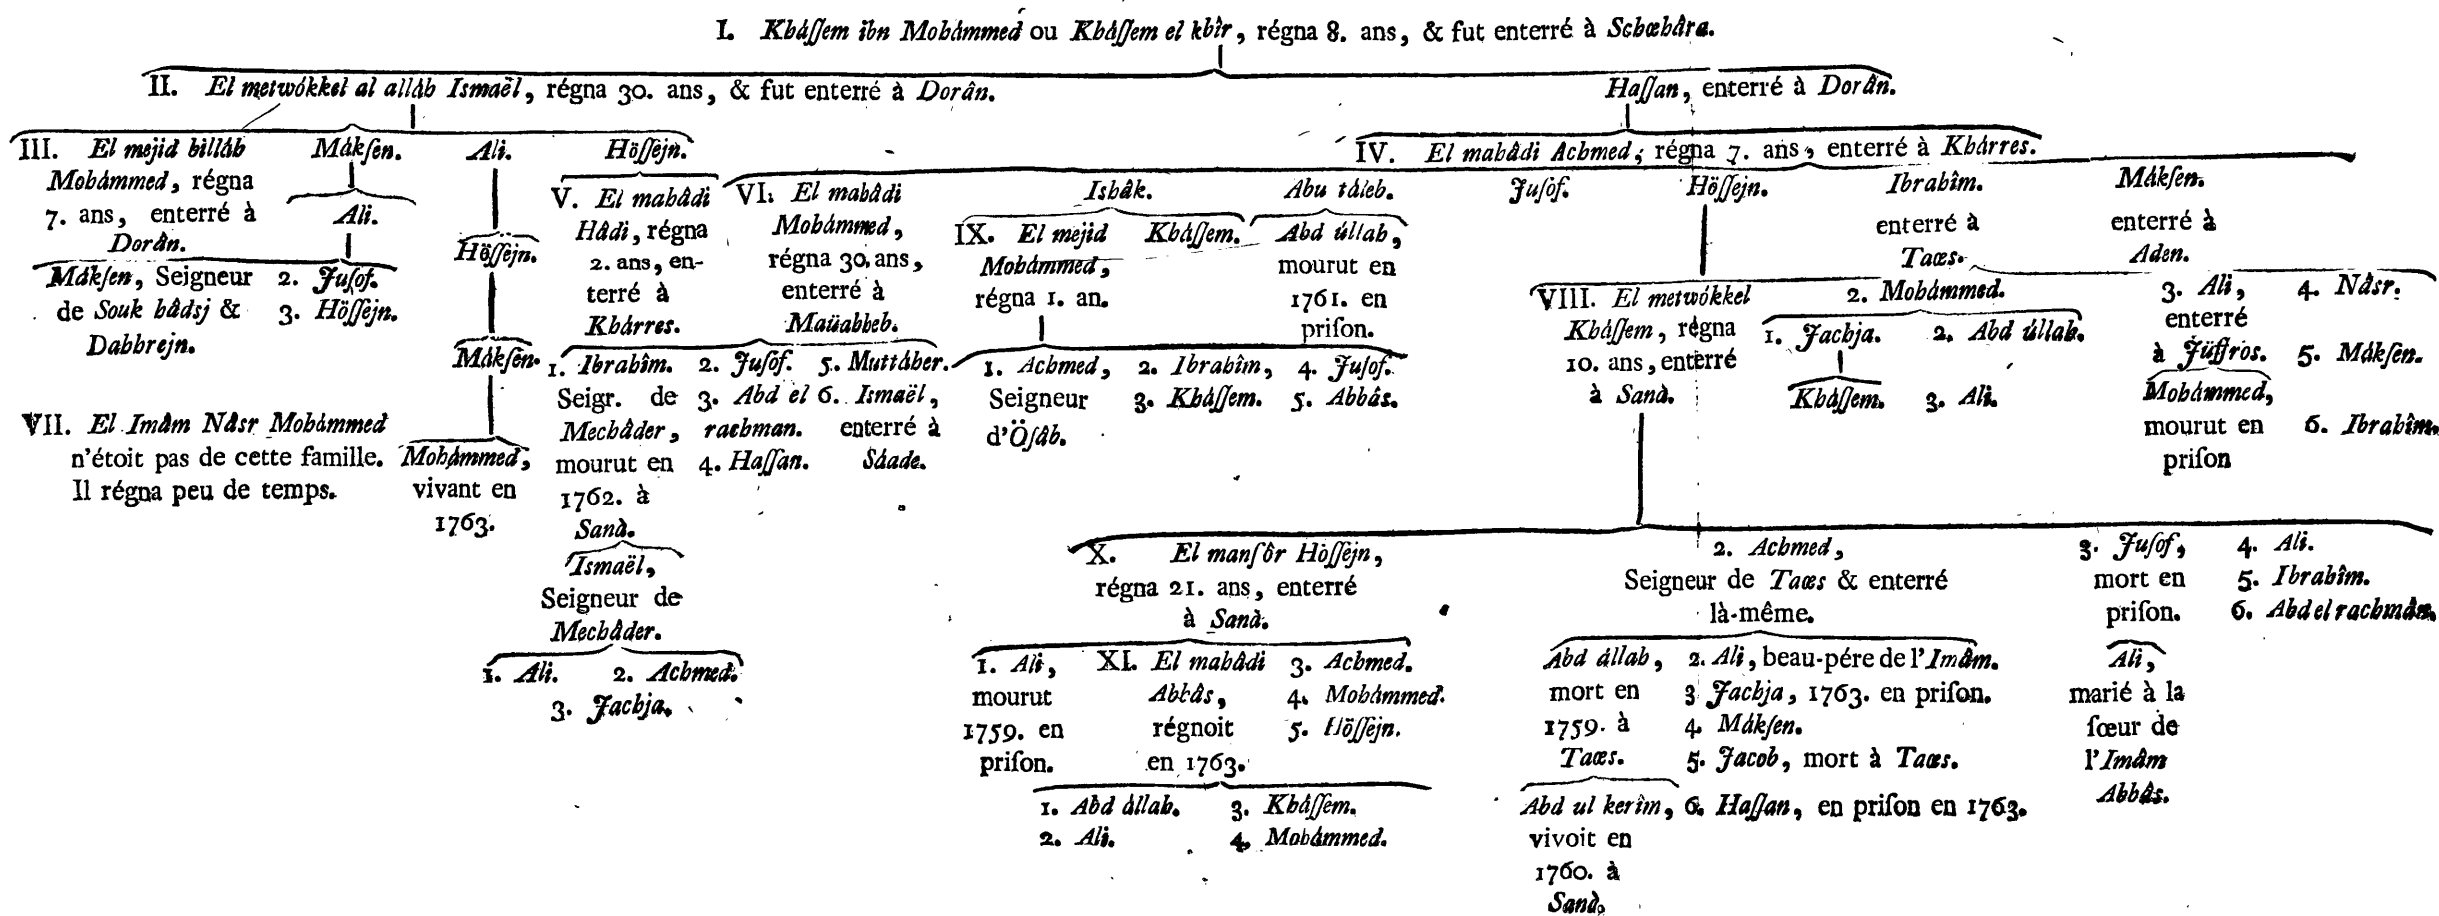 I. Khâſſem ibn Mohámmed ou Khâſſem el kbîr, régna 8. ans, & fut enterré à Schæhâra.
II. El metwókkel al alláh Ismaël, régna 30. ans, & fut enterré à Dorân.
Haſſan, enterré à Dorân.
III. El mejid billáh
Mohámmed, régna
7. ans, enterré à
Dorân.
Mákſen.
Ali.
Ali.
Höſſejn.
IV. El mahâdi Achmed, régna 7. ans, enterré à Khárres.
Mákſen, Seigneur
de Souk hâdsj &
Dahhrejn.
2. Juſof.
3. Höſſejn.
Höſſejn.
Mákſen.
Mohámmed,
vivant en
1763.
VII. El Imâm Nâsr Mohámmed
n'étoit pas de cette famille.
Il régna peu de temps.
V. El mahâdi
Hâdi, régna
2. ans, en-
terré à
Khárres.
VI. El mahâdi
Mohámmed,
régna 30. ans,
enterré à
Maüahheb.
1. Ibrahîm.
Seigr. de
Mechâder,
mourut en
1762. à
Sanà.
2. Juſof.
3. Abd el
rachman.
4. Haſſan.
5. Muttáher.
6. Ismaël,
enterré à
Sáade.
Ismaël,
Seigneur de
Mechâder.
1. Ali.
2. Achmed.
3. Jachja.
Ishâk.
IX. El mejid
Mohámmed,
régna 1. an.
Khâſſem.
1. Achmed,
Seigneur
d'Öſâb.
2. Ibrahîm,
3. Khâſſem.
4. Juſof.
5. Abbâs.
Abu táleb.
Abd úllah,
mourut en
1761. en
priſon.
Juſof.
Höſſejn.
Ibrahîm.
enterré à
Taæs.
Mákſen.
enterré à
Aden.
VIII. El metwókkel
Khâſſem, régna
10. ans, enterré
à Sanà.
2. Mohámmed.
1. Jachja.
2. Abd úllah.
Khâſſem.
3. Ali.
3. Ali,
enterré
à Jüffros.
Mohámmed,
mourut en
priſon
4. Nâsr.
5. Mákſen.
6. Ibrahîm.
X. El manſôr Höſſejn,
régna 21. ans, enterré
à Sanà.
1. Ali,
mourut
1759. en
priſon.
XI. El mahâdi
Abbâs,
régnoit
en 1763.
3. Achmed.
4. Mohámmed.
5. Höſſejn.
1. Abd állah.
2. Ali.
3. Khâſſem.
4. Mohámmed.
2. Achmed,
Seigneur de Taæs & enterré
là-même.
Abd állah,
mort en
1759. à
Taæs.
Abd ul kerîm,
vivoit en
1760. à
Sanà.
2. Ali, beau-pére de l'Imâm.
3 Jachja, 1763. en priſon.
4. Mákſen.
5. Jacob, mort à Taæs.
6. Haſſan, en priſon en 1763.
3. Juſof,
mort en
priſon.
Ali,
marié à la
ſœur de
l'Imâm
Abbâs.
4. Ali.
5. Ibrahîm.
6. Abd el rachmân.